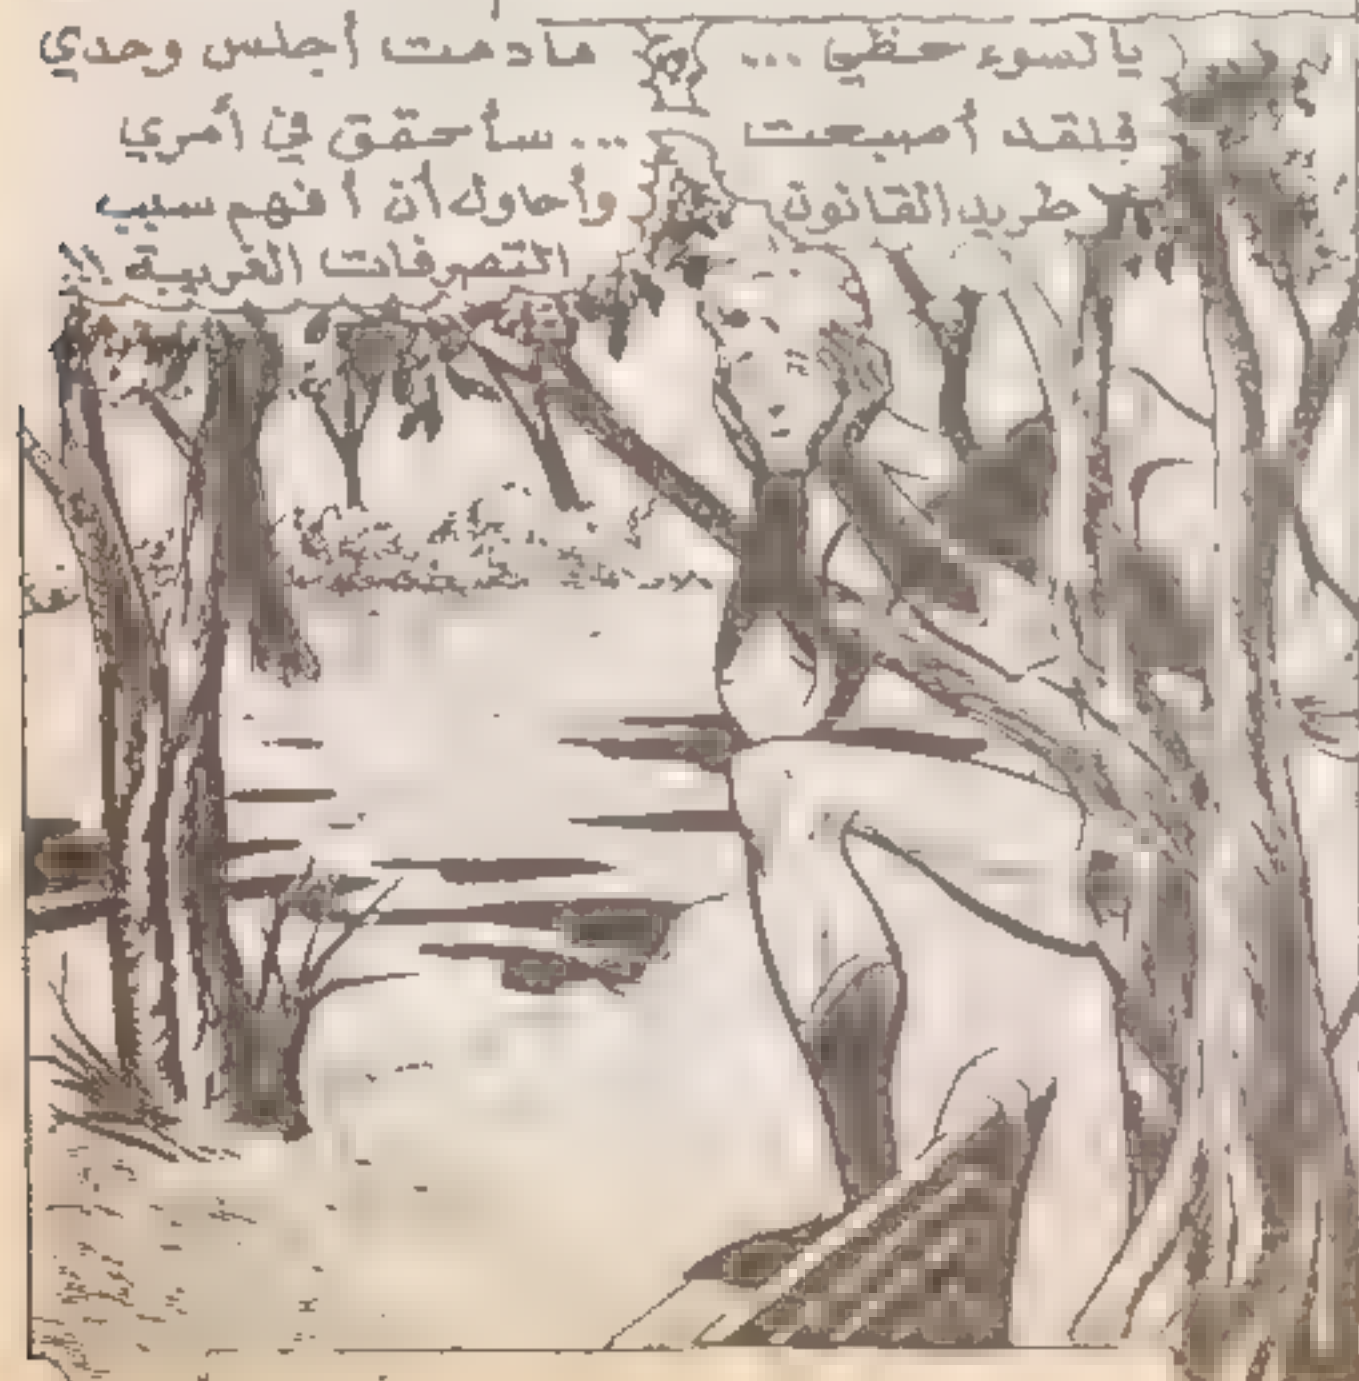 يا لسوء حظي ...
فلقد أصبحت
طريد القانون
ما دمت أجلس وحدي
... سأحقق في أمري
وأحاول أن أفهم سبب
التصرفات الغريبة !!